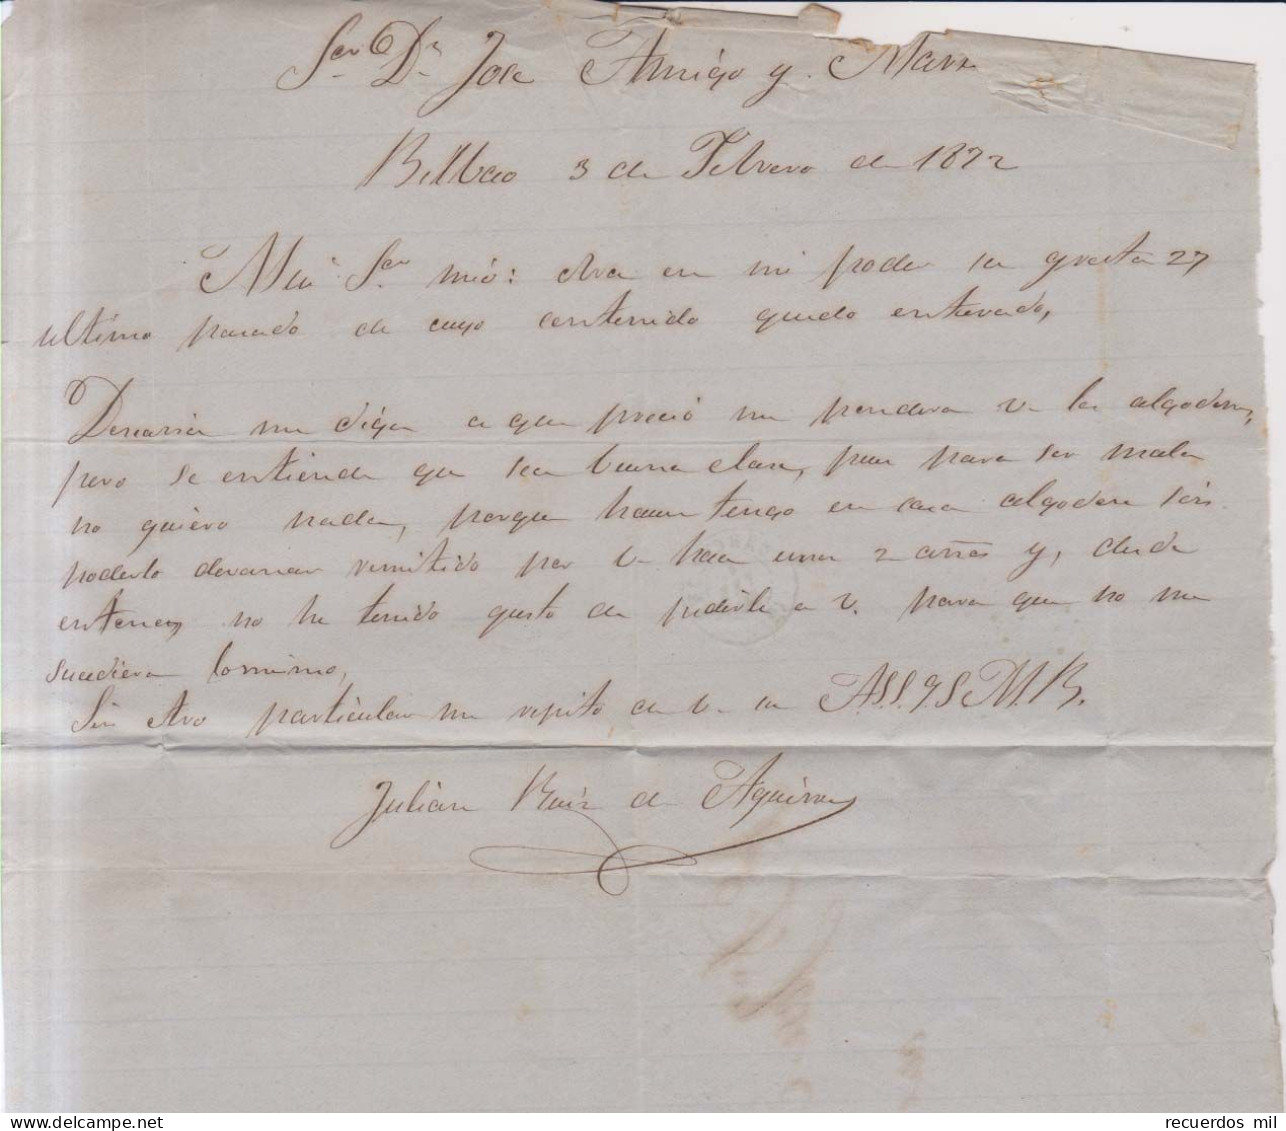 Sor Dn Jose Amigo y Mars
Bilbao 3 de Febrero de 1872
Mui Sor mio: obra en mi poder su grata 27
ultimo pasado de cuyo contenido quedo enterado,
Desearia me diga a que precio me pondera V. los algodones,
pero se entiende que sea buena clase, pues para ser mala
no quiero nada, porque haun tengo en casa algodon sin
poderlo devanar remitido por V. hace unos 2 años y, desde
entonces no he tenido gusto de pedirle a V. para que no me
sucdiera lo mismo,
Sin otro particular me repito de V. su A.S.S.Q.S.M.B.
Julian Ruiz de Aguirre
recuerdos mil